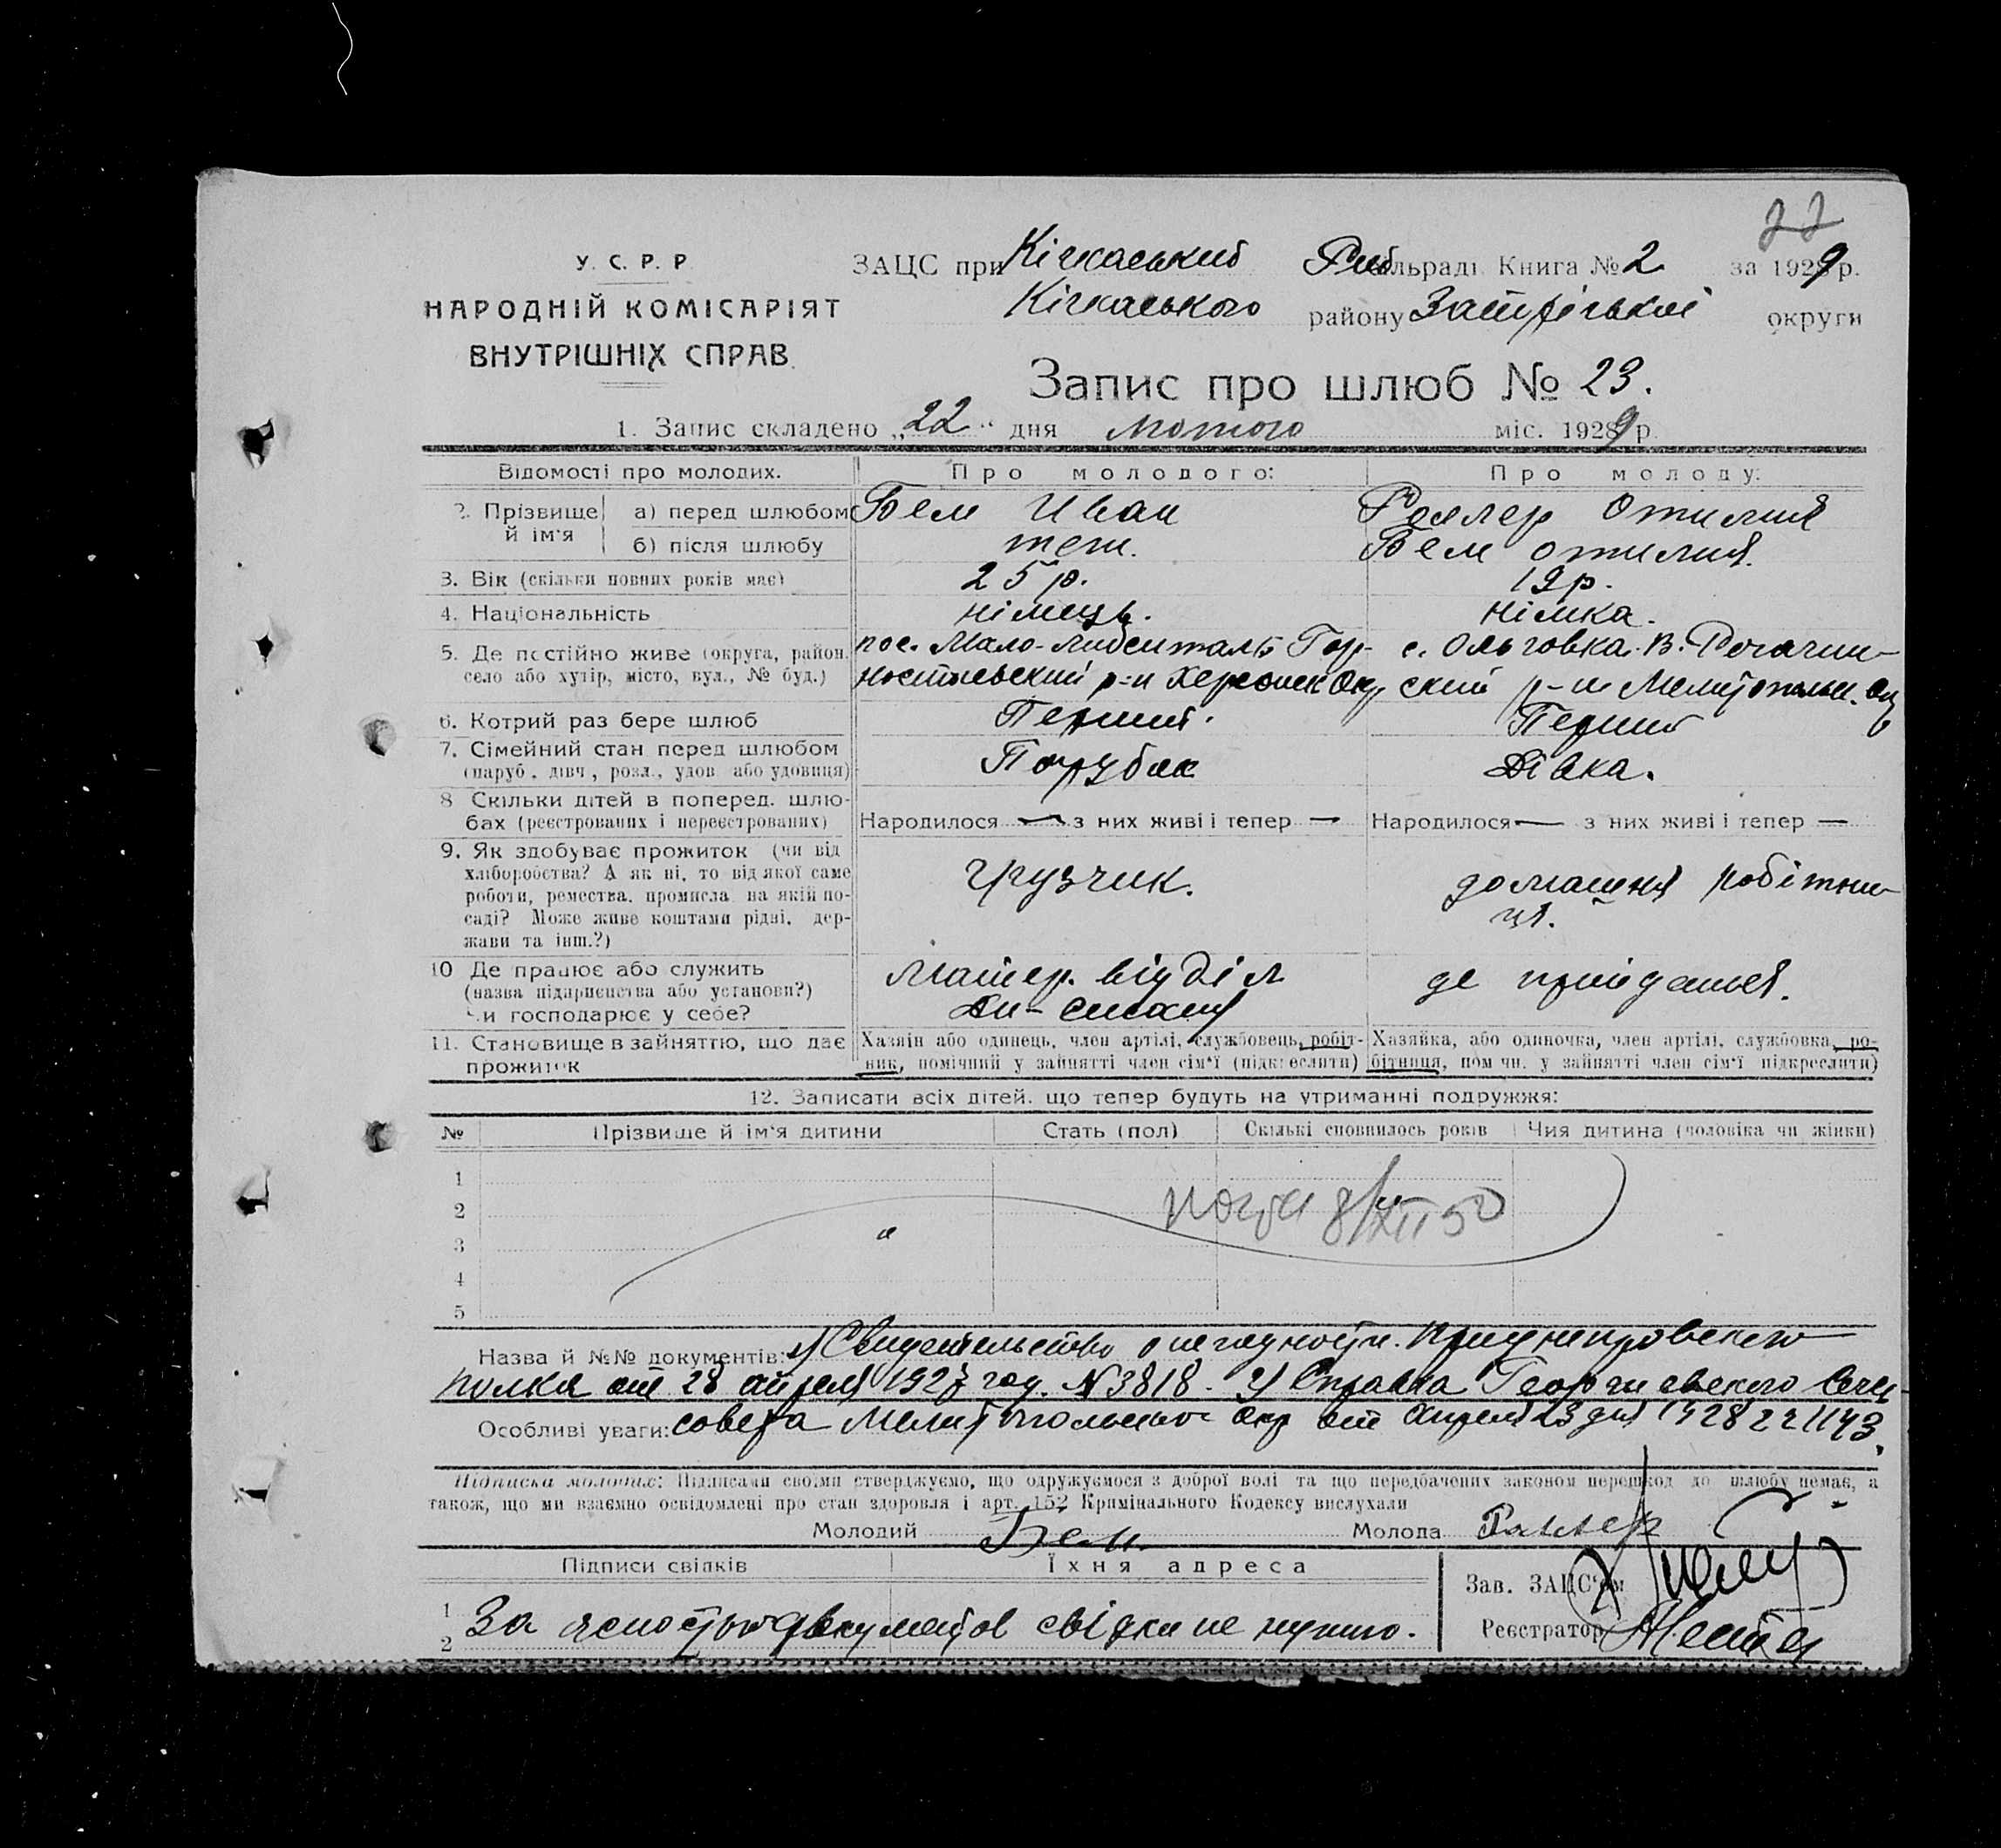 22
У. С. Р. Р
НАРОДНІЙ КОМІСАРІЯТ
ВНУТРІШНІХ СПРАВ.
ЗАЦС при Кічкаський Раб льраді Книга № 2 за 1929 р.
Кічкаського району Запоріської округи
Запис про шлюб № 23.
1. Запис складено „22" дня лютого міс. 1929 р.
Відомості про молодих. Про молодого: Про молоду:
2. Прізвище й ім'я а) перед шлюбом Бем Иван Роллер Отилия
б) після шлюбу теж. Бем Отилия.
3. Вік (скільки повних років має) 25 р. 19 р.
4. Національність німець. німка.
5. Де постійно живе (округа, район, пос. Мало-Либенталь Гор- с. Ольговка. В. Рогачик-
село або хутір, місто, вул., № буд.) ностаевский р-н Херсонск Окр. ский р-н Мелитопольс. Окр
6. Котрий раз бере шлюб Перший. Перший
7. Сімейний стан перед шлюбом Парубок Дівка.
(паруб., дівч., розл., удов. або удовиця)
8 Скільки дітей в поперед. шлю-
бах (реєстрованих і нереєстрованих) Народилося — з них живі і тепер — Народилося — з них живі і тепер —
9. Як здобуває прожиток (чи від
хліборобства? А як ні, то від якої саме грузчик. домашня робітни-
роботи, ремества, промисла, на якій по- ця.
саді? Може живе коштами рідні, дер-
жави та інш.?)
10 Де працює або служить Матер. відділ де прийдеться.
(назва підприємства або установи?)
чи господарює у себе?
11. Становище в зайняттю, що дає Хазяїн або одинець, член артілі, службовець, робіт- Хазяйка, або одиночка, член артілі, службовка, ро-
прожиток ник, помічний у зайнятті член сім'ї (підкреслити) бітниця, помічн. у зайнятті член сім'ї підкреслити)
12. Записати всіх дітей, що тепер будуть на утриманні подружжя:
№ Прізвище й ім'я дитини Стать (пол) Скількі сповнилось років Чия дитина (чоловіка чи жінки)
1
2
3
4
5
Назва й №№ документів: 1) Свидетельство о негодности. Приднепровского
полка от 28 апреля 1927 год. N 3818. 2) Справка Георгиевского Сель
Особливі уваги: совета Мелитопольско Окр от Апреля 23 дня 1928 1143.
Підписка молодих: Підписами своїми стверджуємо, що одружуємося з доброї волі та що передбачених законом перешкод до шлюбу немає, а
також, що ми взаємно освідомлені про стан здоровля і арт. 152 Кримінального Кодексу вислухали
Молодий Бем. Молода Роллер
Підписи свідків Їхня адреса Зав. ЗАЦС'ом
1 За документов свідки не нужно. Реєстратор
2